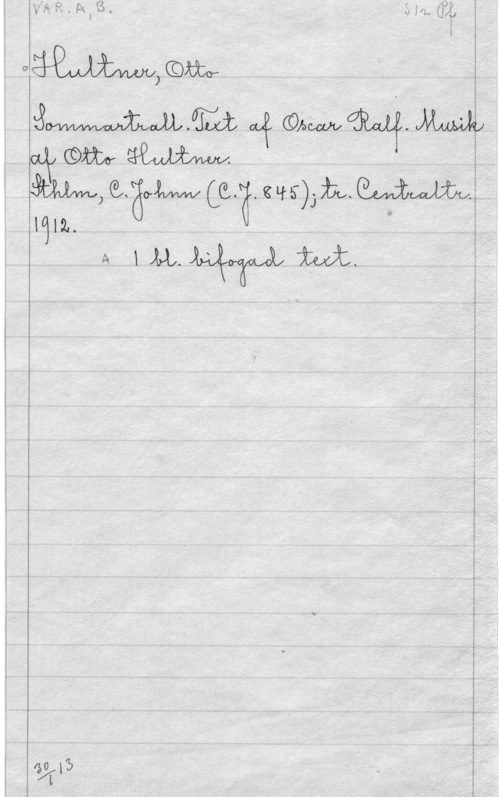 VAR. A, B. S1r. Pf
Hultner, Otto
Sommartrall. Text af Oscar Ralf. Musik
af Otto Hultner.
Sthlm, C. Johnn (C.J. 845); tr. Centraltr.
1912.
A 1 bl. bifogad text.
30/1 13